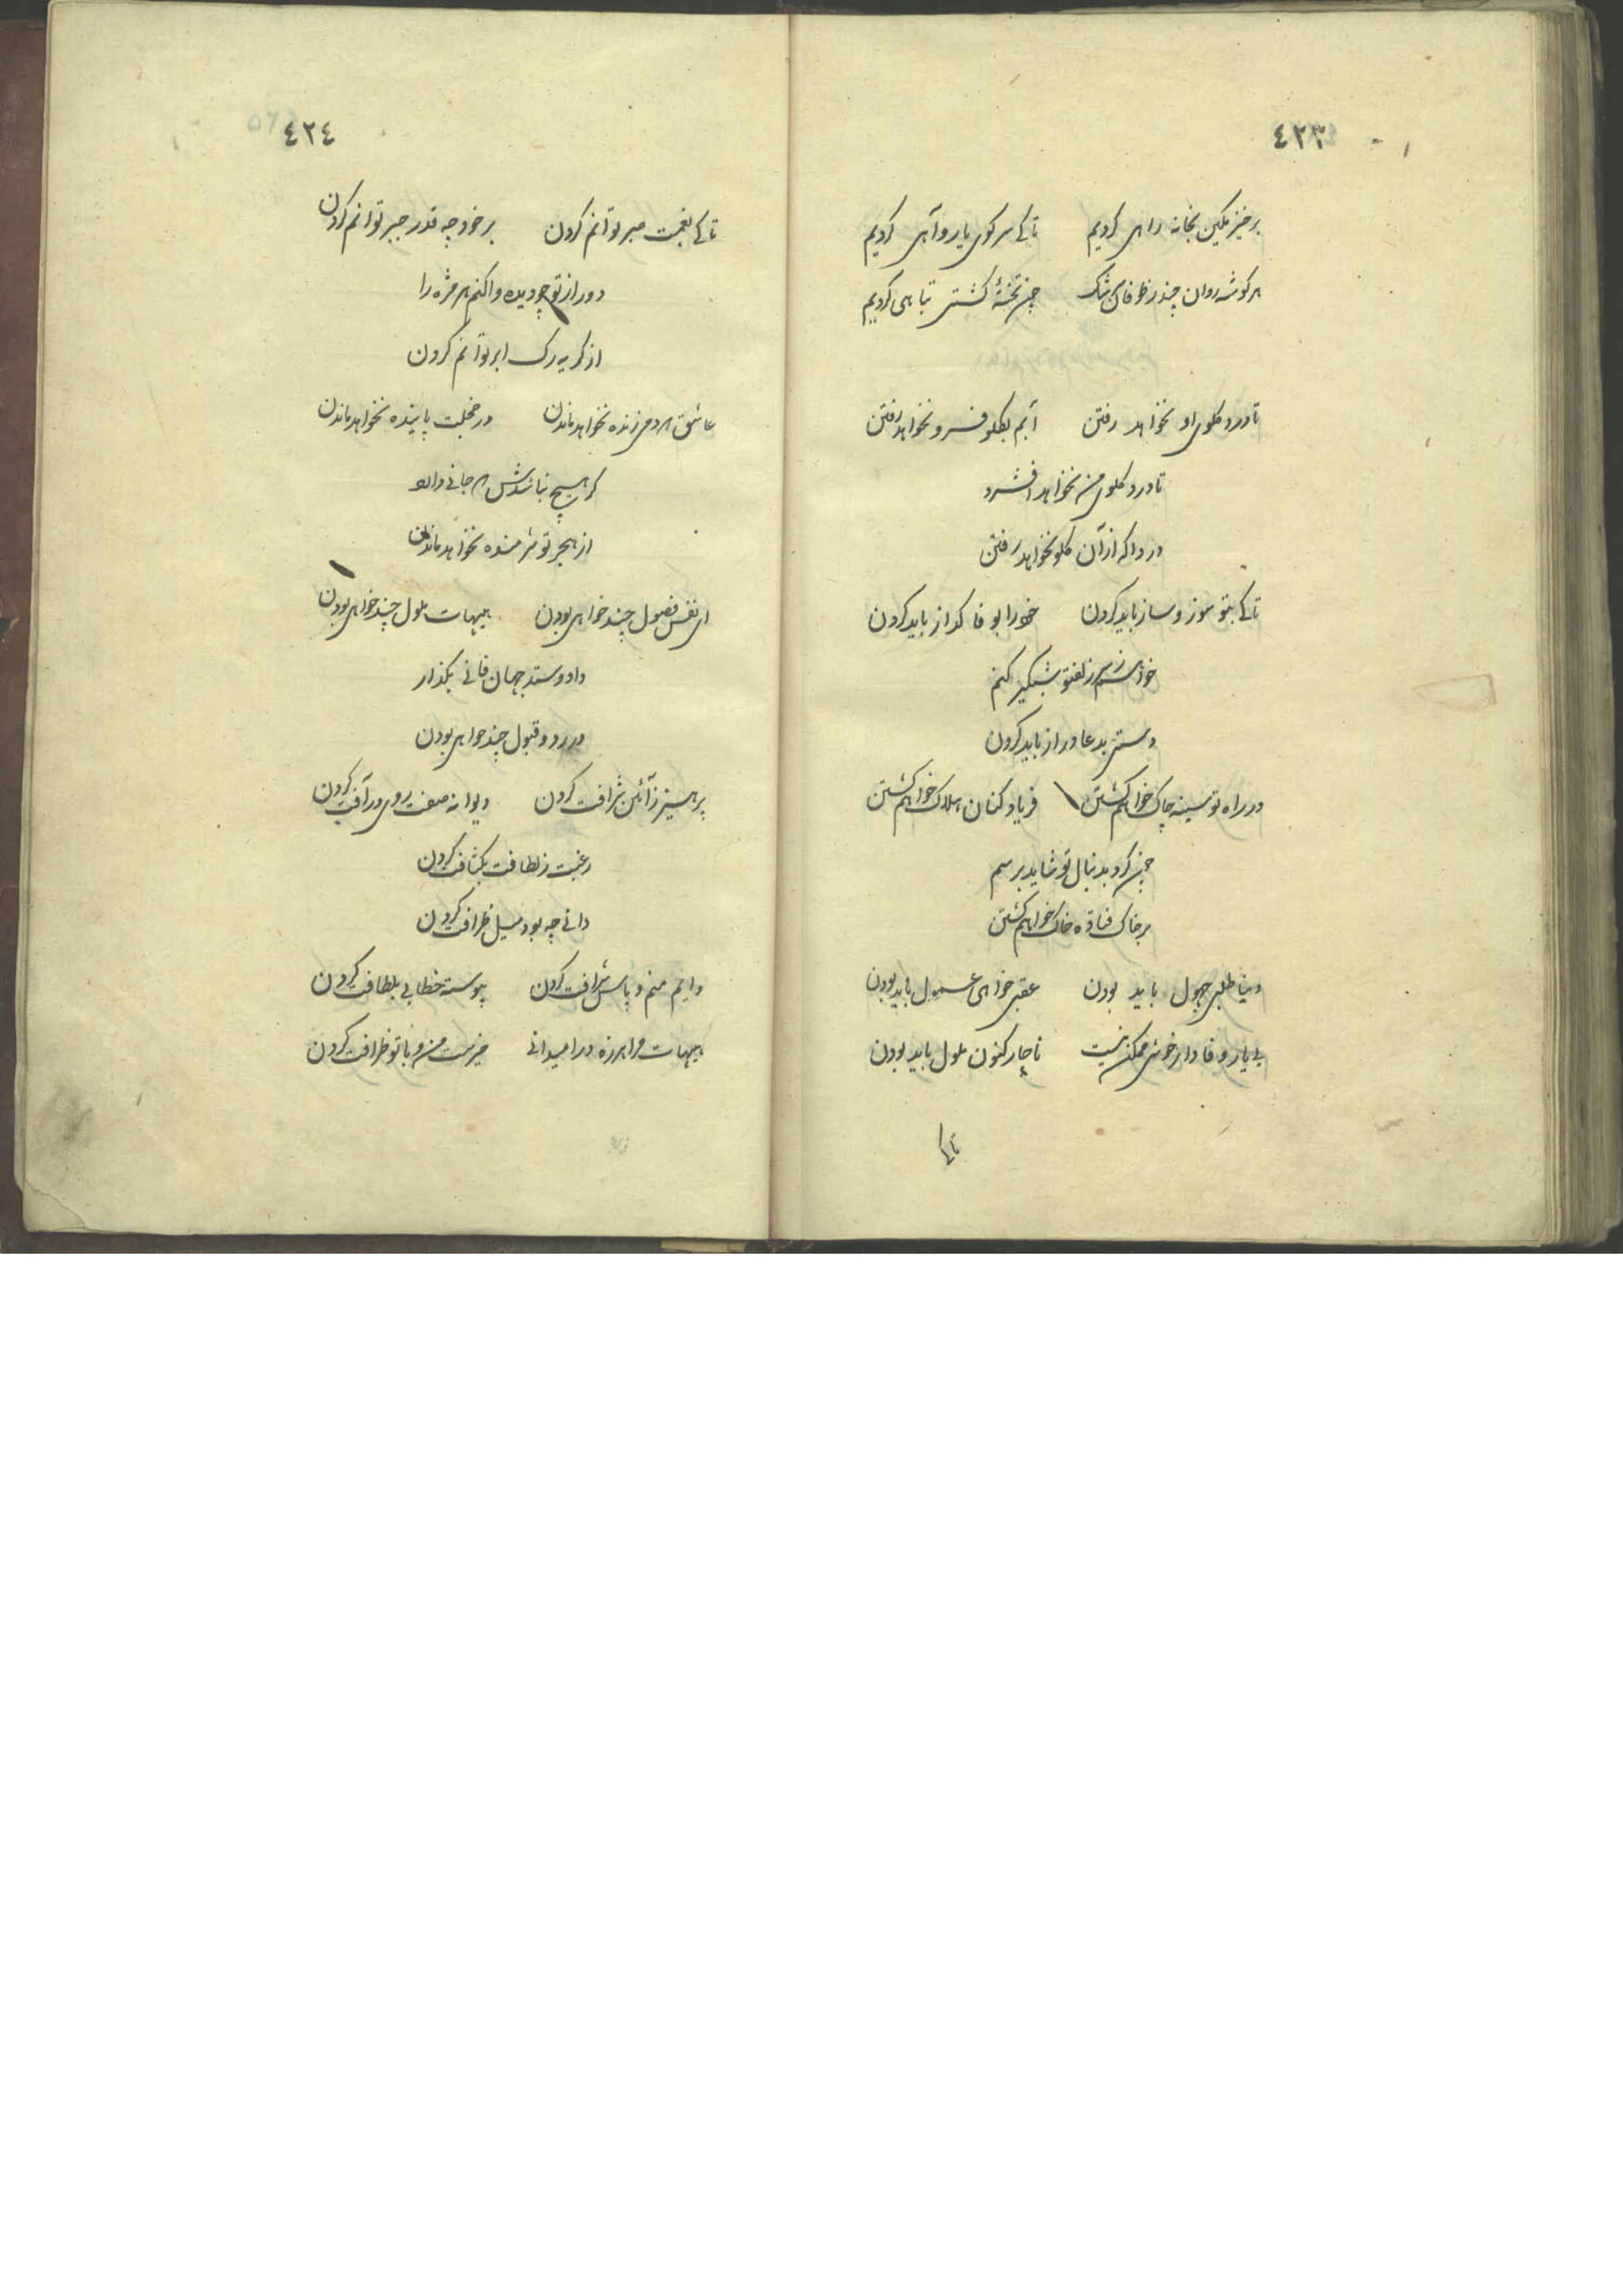 ٤٢٣
برخیز مکین بخانه راهی کردیم تا کے سر کوی یار و آهی کردیم
هر کوشه روان چند ز طوفان سرشک چون تختهٔ کشتی تباهی کردیم
تا درد کلوی او نخواهد رفتن آبم بکلو فرو نخواهد رفتن
تا درد کلوی من نخواهد افشرد
دردا که از آن کلو نخواهد رفتن
تا کے بتو سوز و ساز باید کردن خود را بوفا کداز باید کردن
خواهم ز سر زلف تو شبکیر کنم
دستی بدعا دراز باید کردن
در راه تو سینه چاک خواهم کشتن فریاد کنان هلاک خواهم کشتن
چون کرد بدنبال تو شاید برسم
بر خاک فتاده خاک خواهم کشتن
دنیا طلبی جهول باید بودن عقبی خواهی عسول باید بودن
بی یار وفادار خوشی ممکن نیست ناچار کنون ملول باید بودن
تا کے
٤٢٤
تا کے بغمت صبر توانم کردن بر خود چه قدر جبر توانم کردن
دور از تو چو دیده وا کنم هر مژه را
از کریه رک ابر توانم کردن
عاشق هر دمی زنده نخواهد ماندن در خجلت پاینده نخواهد ماندن
کر هیچ نباشدش هم جانے دارد
از هجر تو شرمنده نخواهد ماندن
ای نفس فضول چند خواهی بودن هیهات ملول چند خواهی بودن
داد و ستد جهان فانے بکذار
در رد و قبول چند خواهی بودن
پرهیز ز آئین شرافت کردن دیوانه صفت روی در آفت کردن
رغبت ز لطافت بکثافت کردن
دانے چه بود میل ظرافت کردن
دایم منم و پاس شرافت کردن پیوسته خطابی بلطافت کردن
هیهات مرا هرزه درا میدانے خیرست من و با تو ظرافت کردن